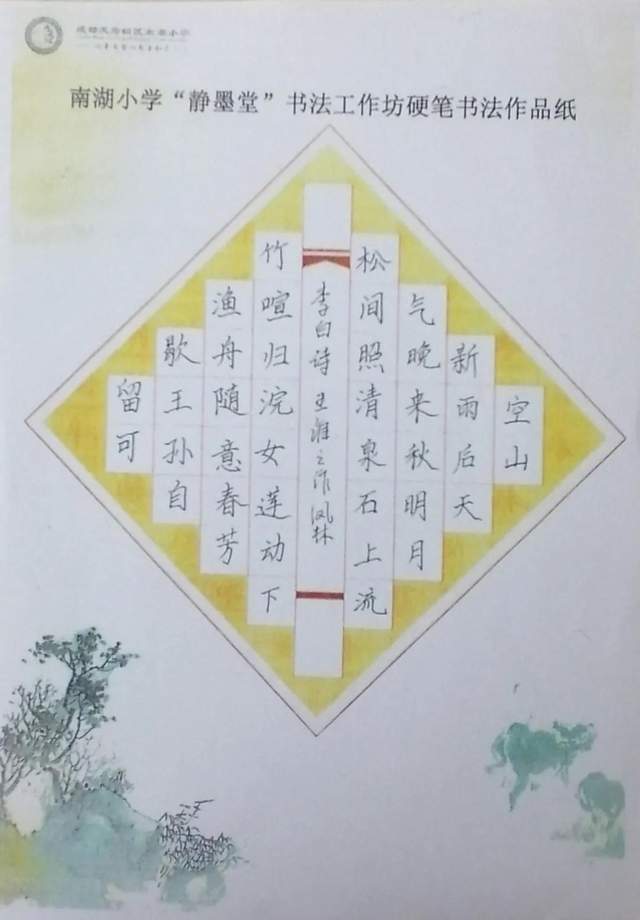 南湖小学“静墨堂”书法工作坊硬笔书法作品纸
空山
新雨后天
气晚来秋明月
松间照清泉石上流
李白诗王维之作凤林
竹喧归浣女莲动下
渔舟随意春芳
歇王孙自
留可